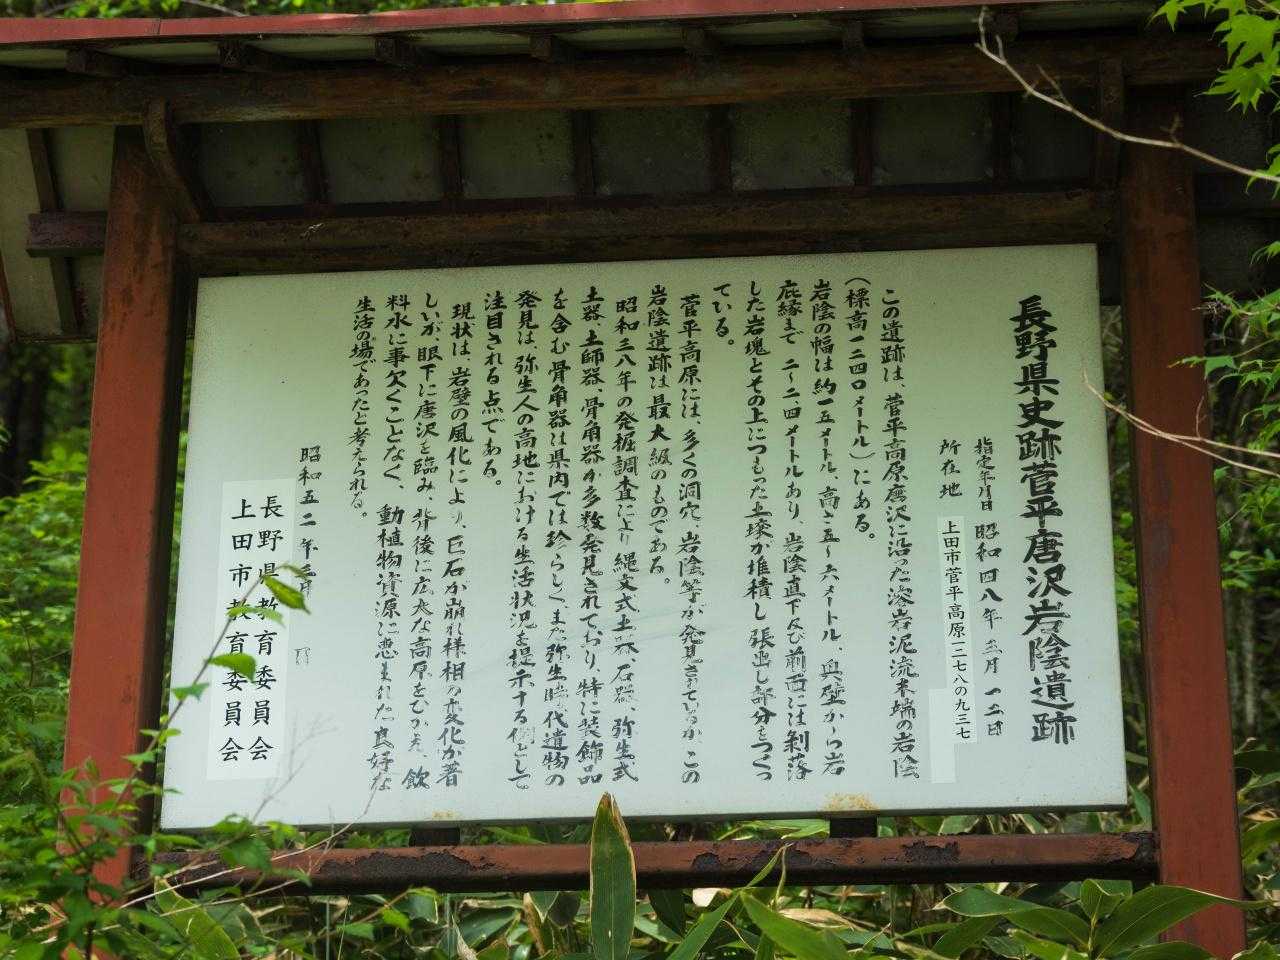 長野県史跡菅平唐沢岩陰遺跡
指定年月日 昭和四八年三月一二日
所在地 上田市菅平高原一二七八の九三七
この遺跡は、菅平高原唐沢に沿った溶岩泥流末端の岩陰
(標高一二四〇メートル)にある。
岩陰の幅は約一五メートル、高さ五〜六メートル、奥壁から岩
庇縁まで二〜二、四メートルあり、岩陰直下及び前面には剝落
した岩塊とその上につもった土壌が堆積し張出し部分をつくっ
ている。
菅平高原には、多くの洞穴、岩陰等が発見されているが、この
岩陰遺跡は最大級のものである。
昭和三八年の発掘調査により縄文式土器、石器、弥生式
土器、土師器、骨角器が多数発見されており、特に装飾品
を含む骨角器は県内では珍らしく、また弥生時代遺物の
発見は、弥生人の高地における生活状況を提示する例として
注目される点である。
現状は、岩壁の風化により、巨石が崩れ様相の変化が著
しいが、眼下に唐沢を臨み、背後に広大な高原をひかえ、飲
料水に事欠くことなく、動植物資源に恵まれた良好な
生活の場であったと考えられる。
昭和五二年三月
長野県教育委員会
上田市教育委員会